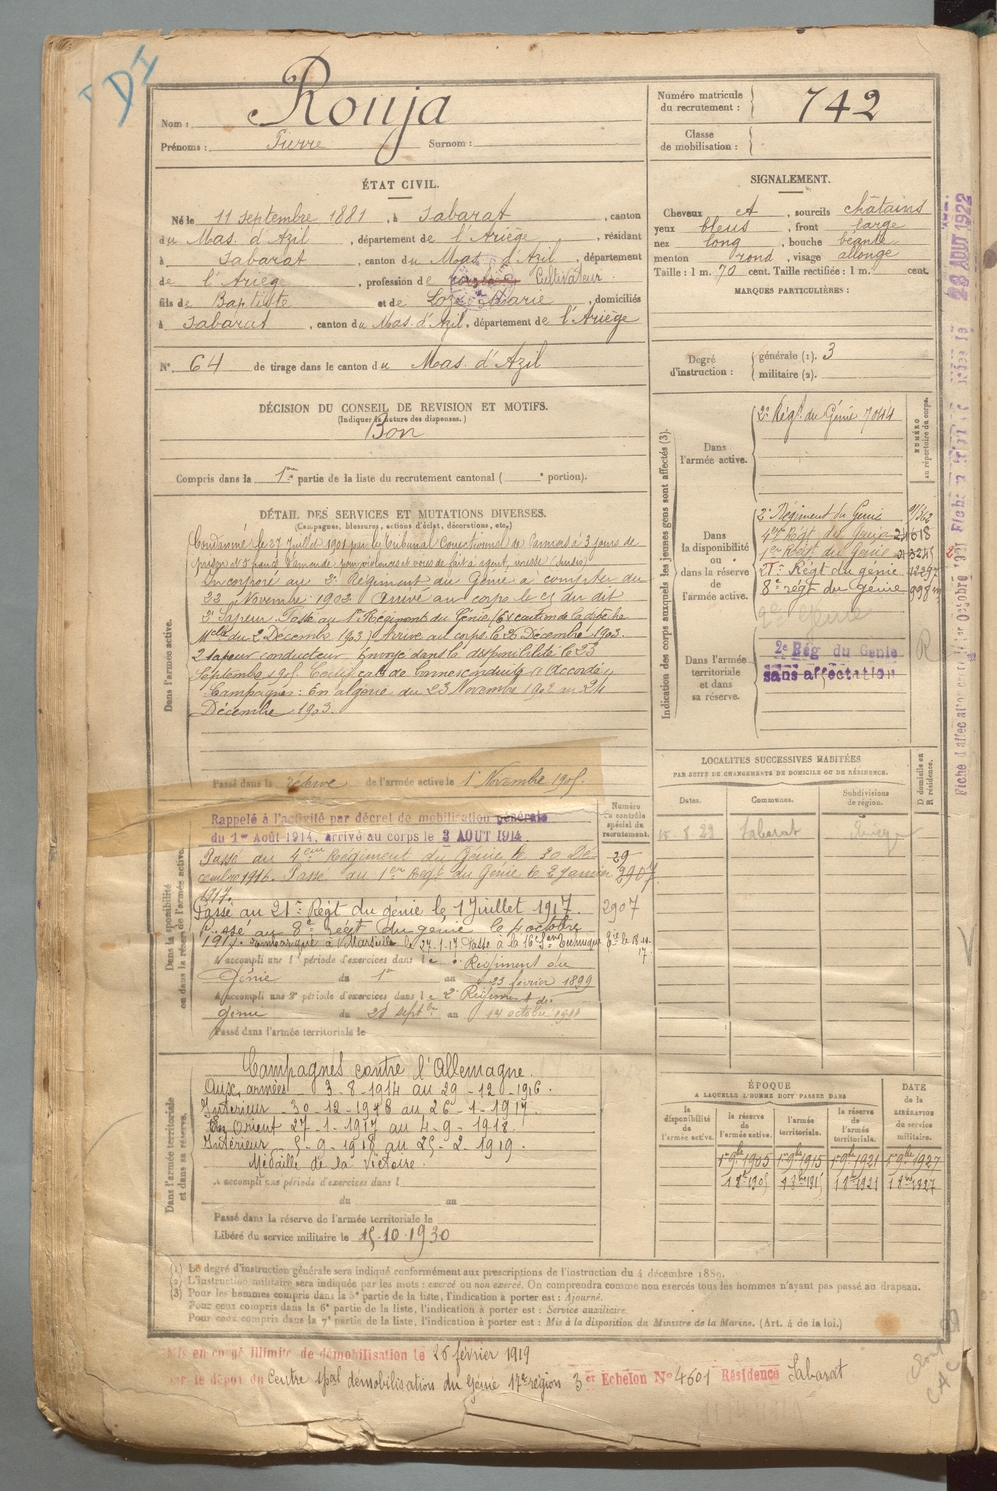 DI
Nom : Rouja
Prénoms : Pierre Surnom :
Numéro matricule du recrutement : 742
Classe de mobilisation :
ÉTAT CIVIL.
Né le 11 Septembre 1881, à Sabarat, canton
du Mas. d'Azil, département de l'Ariège, résidant
à Sabarat, canton du Mas d'Azil, département
de l'Ariège, profession de Cultivateur
fils de Baptiste et de Marie, domiciliés
à Sabarat, canton du Mas. d'Azil, département de l'Ariège
N° 64 de tirage dans le canton du Mas. d'Azil
SIGNALEMENT.
Cheveux et, sourcils châtains
yeux bleus, front large
nez long, bouche
menton rond, visage allongé
Taille : 1 m. 70 cent. Taille rectifiée : 1 m. cent.
MARQUES PARTICULIÈRES :
Degré d'instruction : générale (1). 3
militaire (2).
DÉCISION DU CONSEIL DE REVISION ET MOTIFS.
(Indiquer la nature des dispenses.)
Bon
Compris dans la 1re partie de la liste du recrutement cantonal ( e portion).
DÉTAIL DES SERVICES ET MUTATIONS DIVERSES.
(Campagnes, blessures, actions d'éclat, décorations, etc.)
Dans l'armée active.
Condamné le 27 Juillet 1901 par le Tribunal Correctionnel de Pamiers à 3 jours de
prison et 5 francs d'amende pour violences et voies de fait à agent, ivresse (sursis)
Incorporé au 2e Régiment du Génie à compter du
22 Novembre 1902 Arrivé au corps le 23 du dit
2e Sapeur. Passé au 1er Régiment du Génie (Exécution de la dépêche
Mlle du 2 Décembre 1903). Arrivé au corps le 25 Décembre 1903.
2e Sapeur conducteur. Envoyé dans la disponibilité le 23
Septembre 1905. Certificat de bonne conduite "Accordé"
Campagnes : En Algérie du 23 Novembre 1902 au 24
Décembre 1903.
Passé dans la réserve de l'armée active le 1er Novembre 1905.
Indication des corps auxquels les jeunes gens sont affectés (3).
NUMÉRO au répertoire du corps.
Dans l'armée active.
2e Régt. du Génie 7044
Dans la disponibilité ou dans la réserve de l'armée active.
2e Régiment du Génie
4e Régt du Génie
1er Régt du Génie
21e Régt du génie
8e régt du génie
2e Génie
Dans l'armée territoriale et dans sa réserve.
2e Rég du Genie
sans affectation
R
28 AOUT 1922
LOCALITÉS SUCCESSIVES HABITÉES
PAR SUITE DE CHANGEMENTS DE DOMICILE OU DE RÉSIDENCE.
Dates. Communes. Subdivisions de région. D domicile ou R résidence.
Sabarat
Dans la disponibilité ou dans la réserve de l'armée active.
Numéro au contrôle spécial du recrutement.
Rappelé à l'activité par décret de mobilisation générale
du 1er Août 1914, arrivé au corps le 3 AOUT 1914.
Passé du 4eme Régiment du Génie le 30 Dé-
cembre 1916. Passé au 1er Régt du Génie le 2 Janvier
1917.
Passé au 21e Régt du génie le 1 Juillet 1917. 2907
Passé au 8e régt du génie le 4 octobre
1917. embarqué à Marseille le 27-1-17
A accompli une 1re période d'exercices dans le Régiment du
Génie du 1er au 23 février
A accompli une 2e période d'exercices dans le 2e Régiment du
génie du sept au octobre 1911
Passé dans l'armée territoriale le
Dans l'armée territoriale et dans sa réserve.
Campagnes contre l'Allemagne.
Aux armées 3-8-1914 au 29-12-1916.
Intérieur 30-12-1916 au 26-1-1917.
En Orient 27-1-1917 au 4-9-1918.
Intérieur 5-9-1918 au 25-2-1919.
Médaille de la Victoire.
A accompli une période d'exercices dans l
du au
Passé dans la réserve de l'armée territoriale le
Libéré du service militaire le 15-10-1930
ÉPOQUE
A LAQUELLE L'HOMME DOIT PASSER DANS
la disponibilité de l'armée active. la réserve de l'armée active. l'armée territoriale. la réserve de l'armée territoriale. DATE de la LIBÉRATION du service militaire.
1er 9bre 1905 1er 9bre 1915 1er 9bre 1921 1er 9bre 1927
(1) Le degré d'instruction générale sera indiqué conformément aux prescriptions de l'instruction du 4 décembre 1889.
(2) L'instruction militaire sera indiquée par les mots : exercé ou non exercé. On comprendra comme non exercés tous les hommes n'ayant pas passé au drapeau.
(3) Pour les hommes compris dans la 5e partie de la liste, l'indication à porter est : Ajourné.
Pour ceux compris dans la 6e partie de la liste, l'indication à porter est : Service auxiliaire.
Pour ceux compris dans la 7e partie de la liste, l'indication à porter est : Mis à la disposition du Ministre de la Marine. (Art. 4 de la loi.)
Mis en congé illimité de démobilisation le 26 février 1919
par le dépôt du Centre spal démobilisation du Génie 17e région 3e Echelon N° 4601 Résidence Sabarat